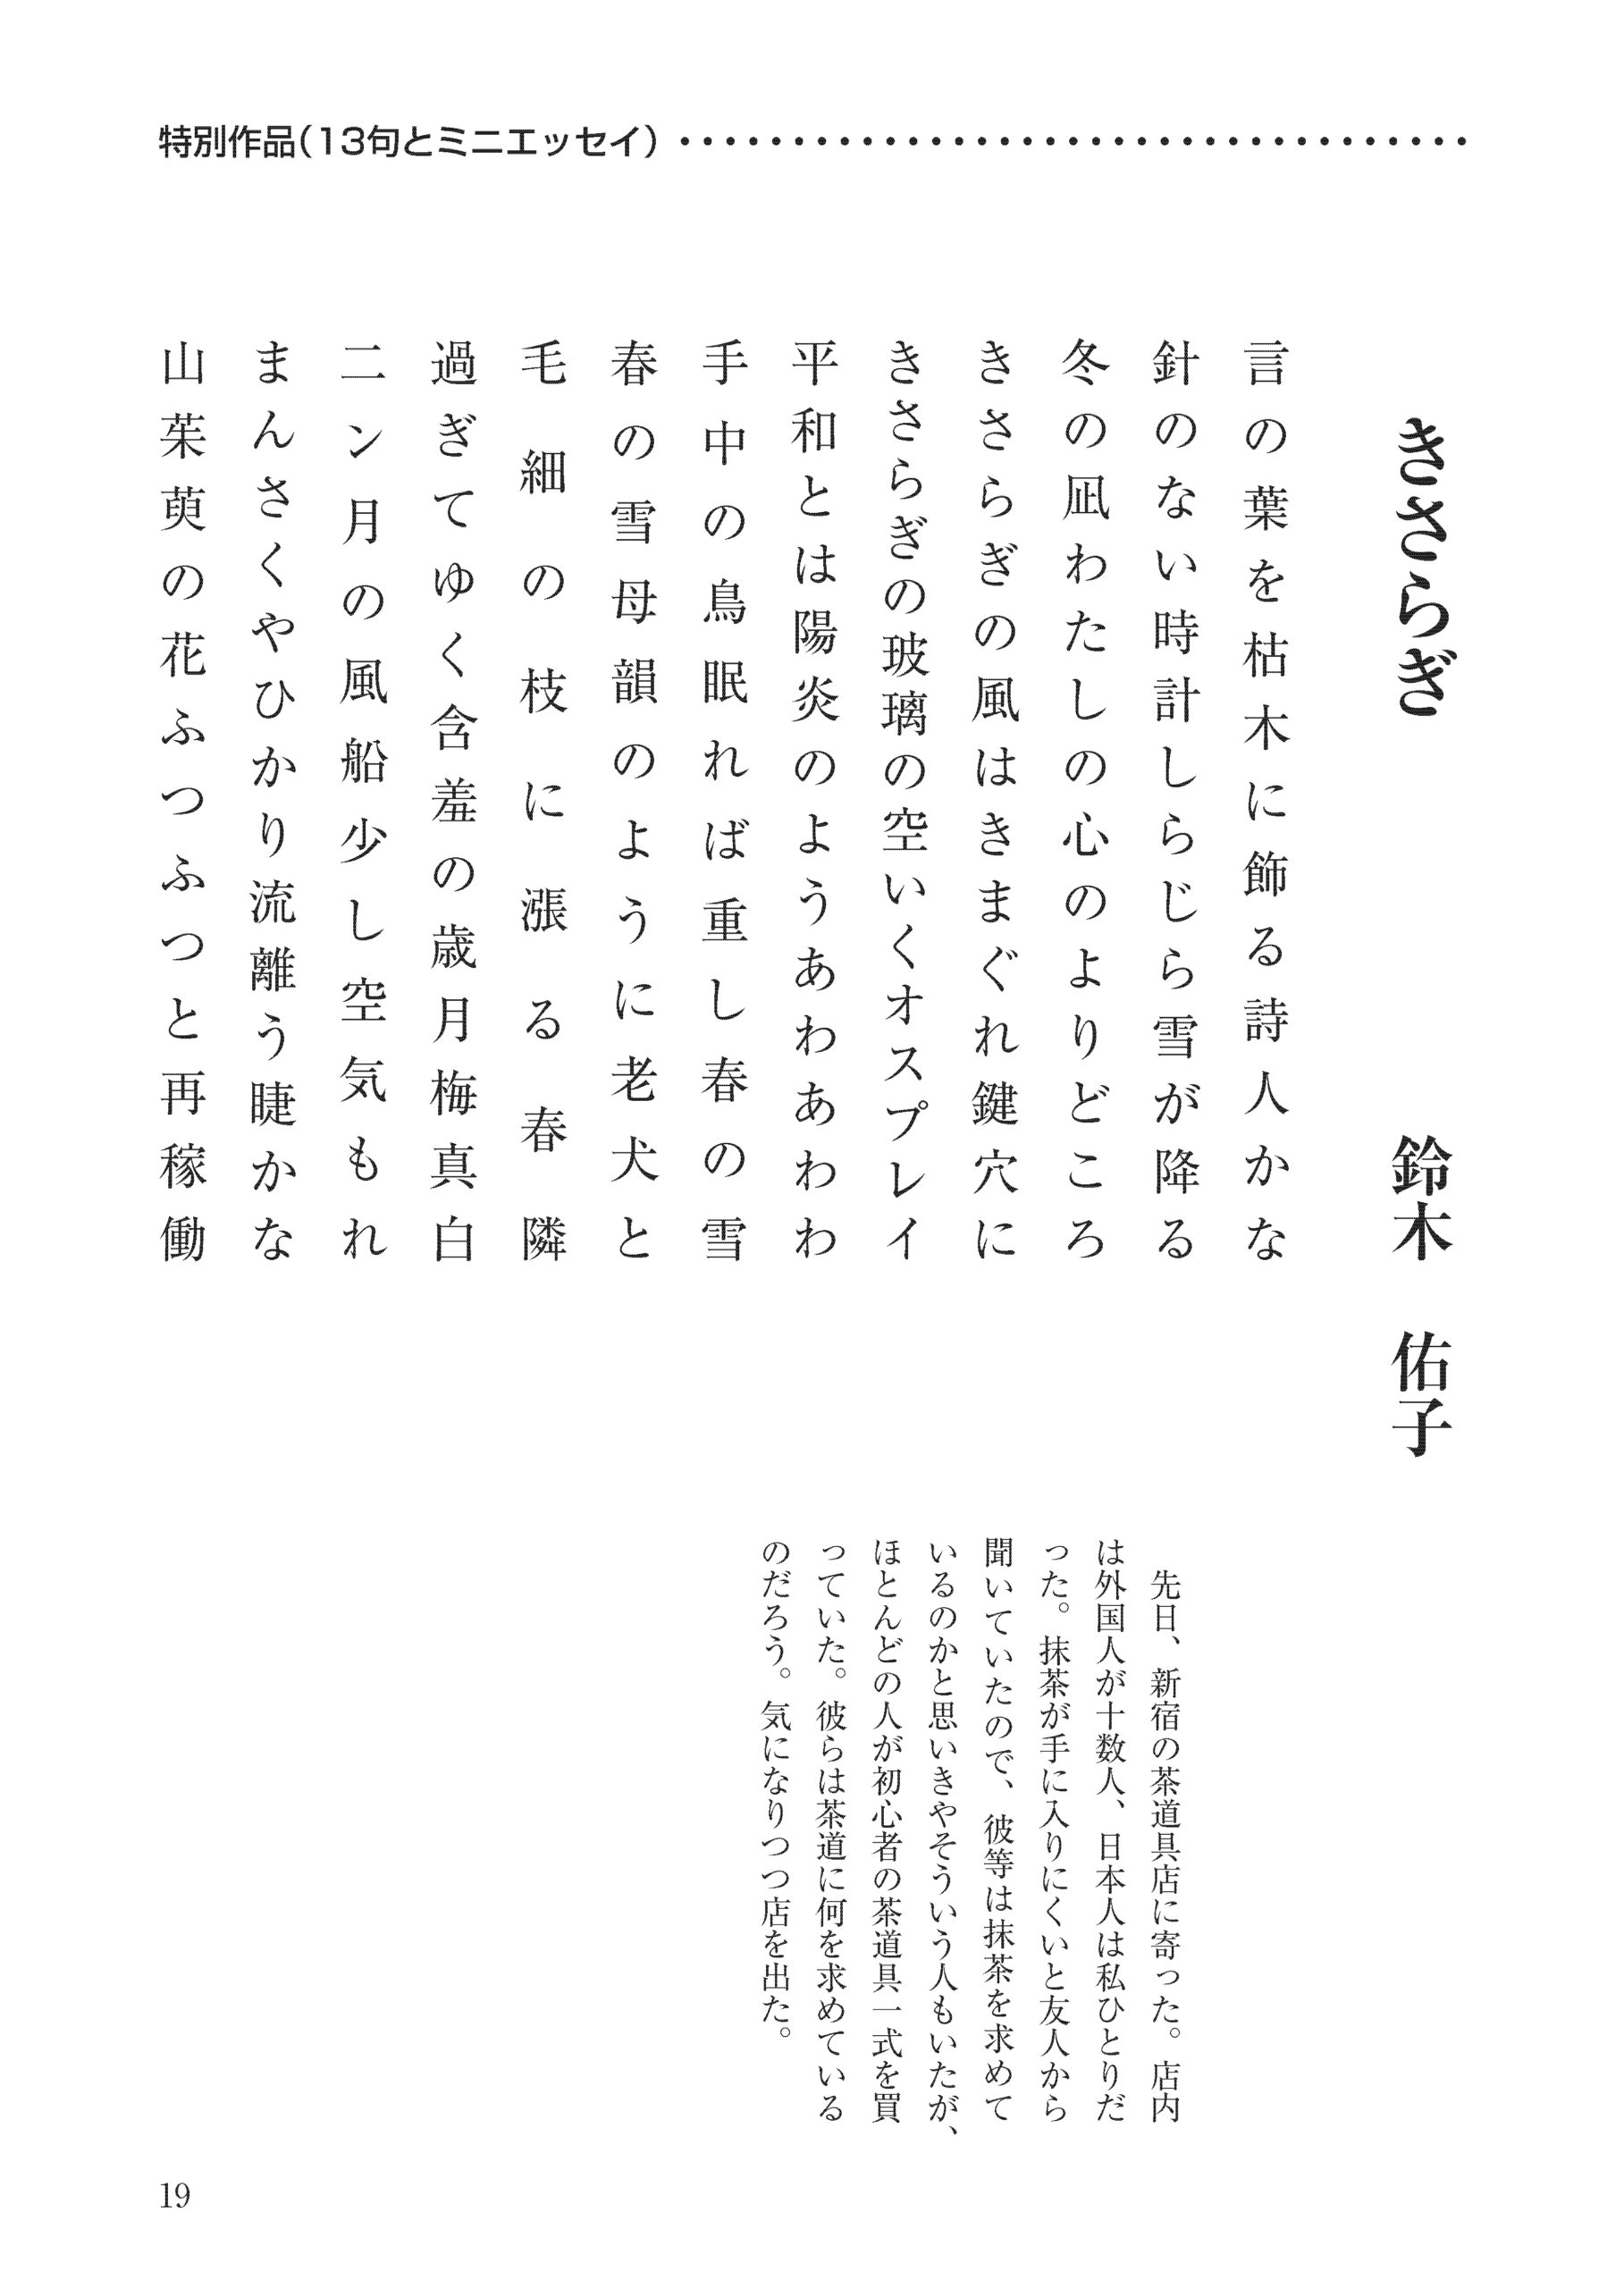 特別作品（13句とミニエッセイ）・・・・・・・・・・・・・・・・・・・・・・・・・・・・・・・・・・・
きさらぎ　鈴木　佑子
言の葉を枯木に飾る詩人かな
針のない時計しらじら雪が降る
冬の凪わたしの心のよりどころ
きさらぎの風はきまぐれ鍵穴に
きさらぎの玻璃の空いくオスプレイ
平和とは陽炎のようあわあわわ
手中の鳥眠れば重し春の雪
春の雪母韻のように老犬と
毛細の枝に漲る春隣
過ぎてゆく含羞の歳月梅真白
二ン月の風船少し空気もれ
まんさくやひかり流離う睫かな
山茱萸の花ふつふつと再稼働
先日、新宿の茶道具店に寄った。店内
は外国人が十数人、日本人は私ひとりだ
った。抹茶が手に入りにくいと友人から
聞いていたので、彼等は抹茶を求めて
いるのかと思いきやそういう人もいたが、
ほとんどの人が初心者の茶道具一式を買
っていた。彼らは茶道に何を求めている
のだろう。気になりつつ店を出た。
19